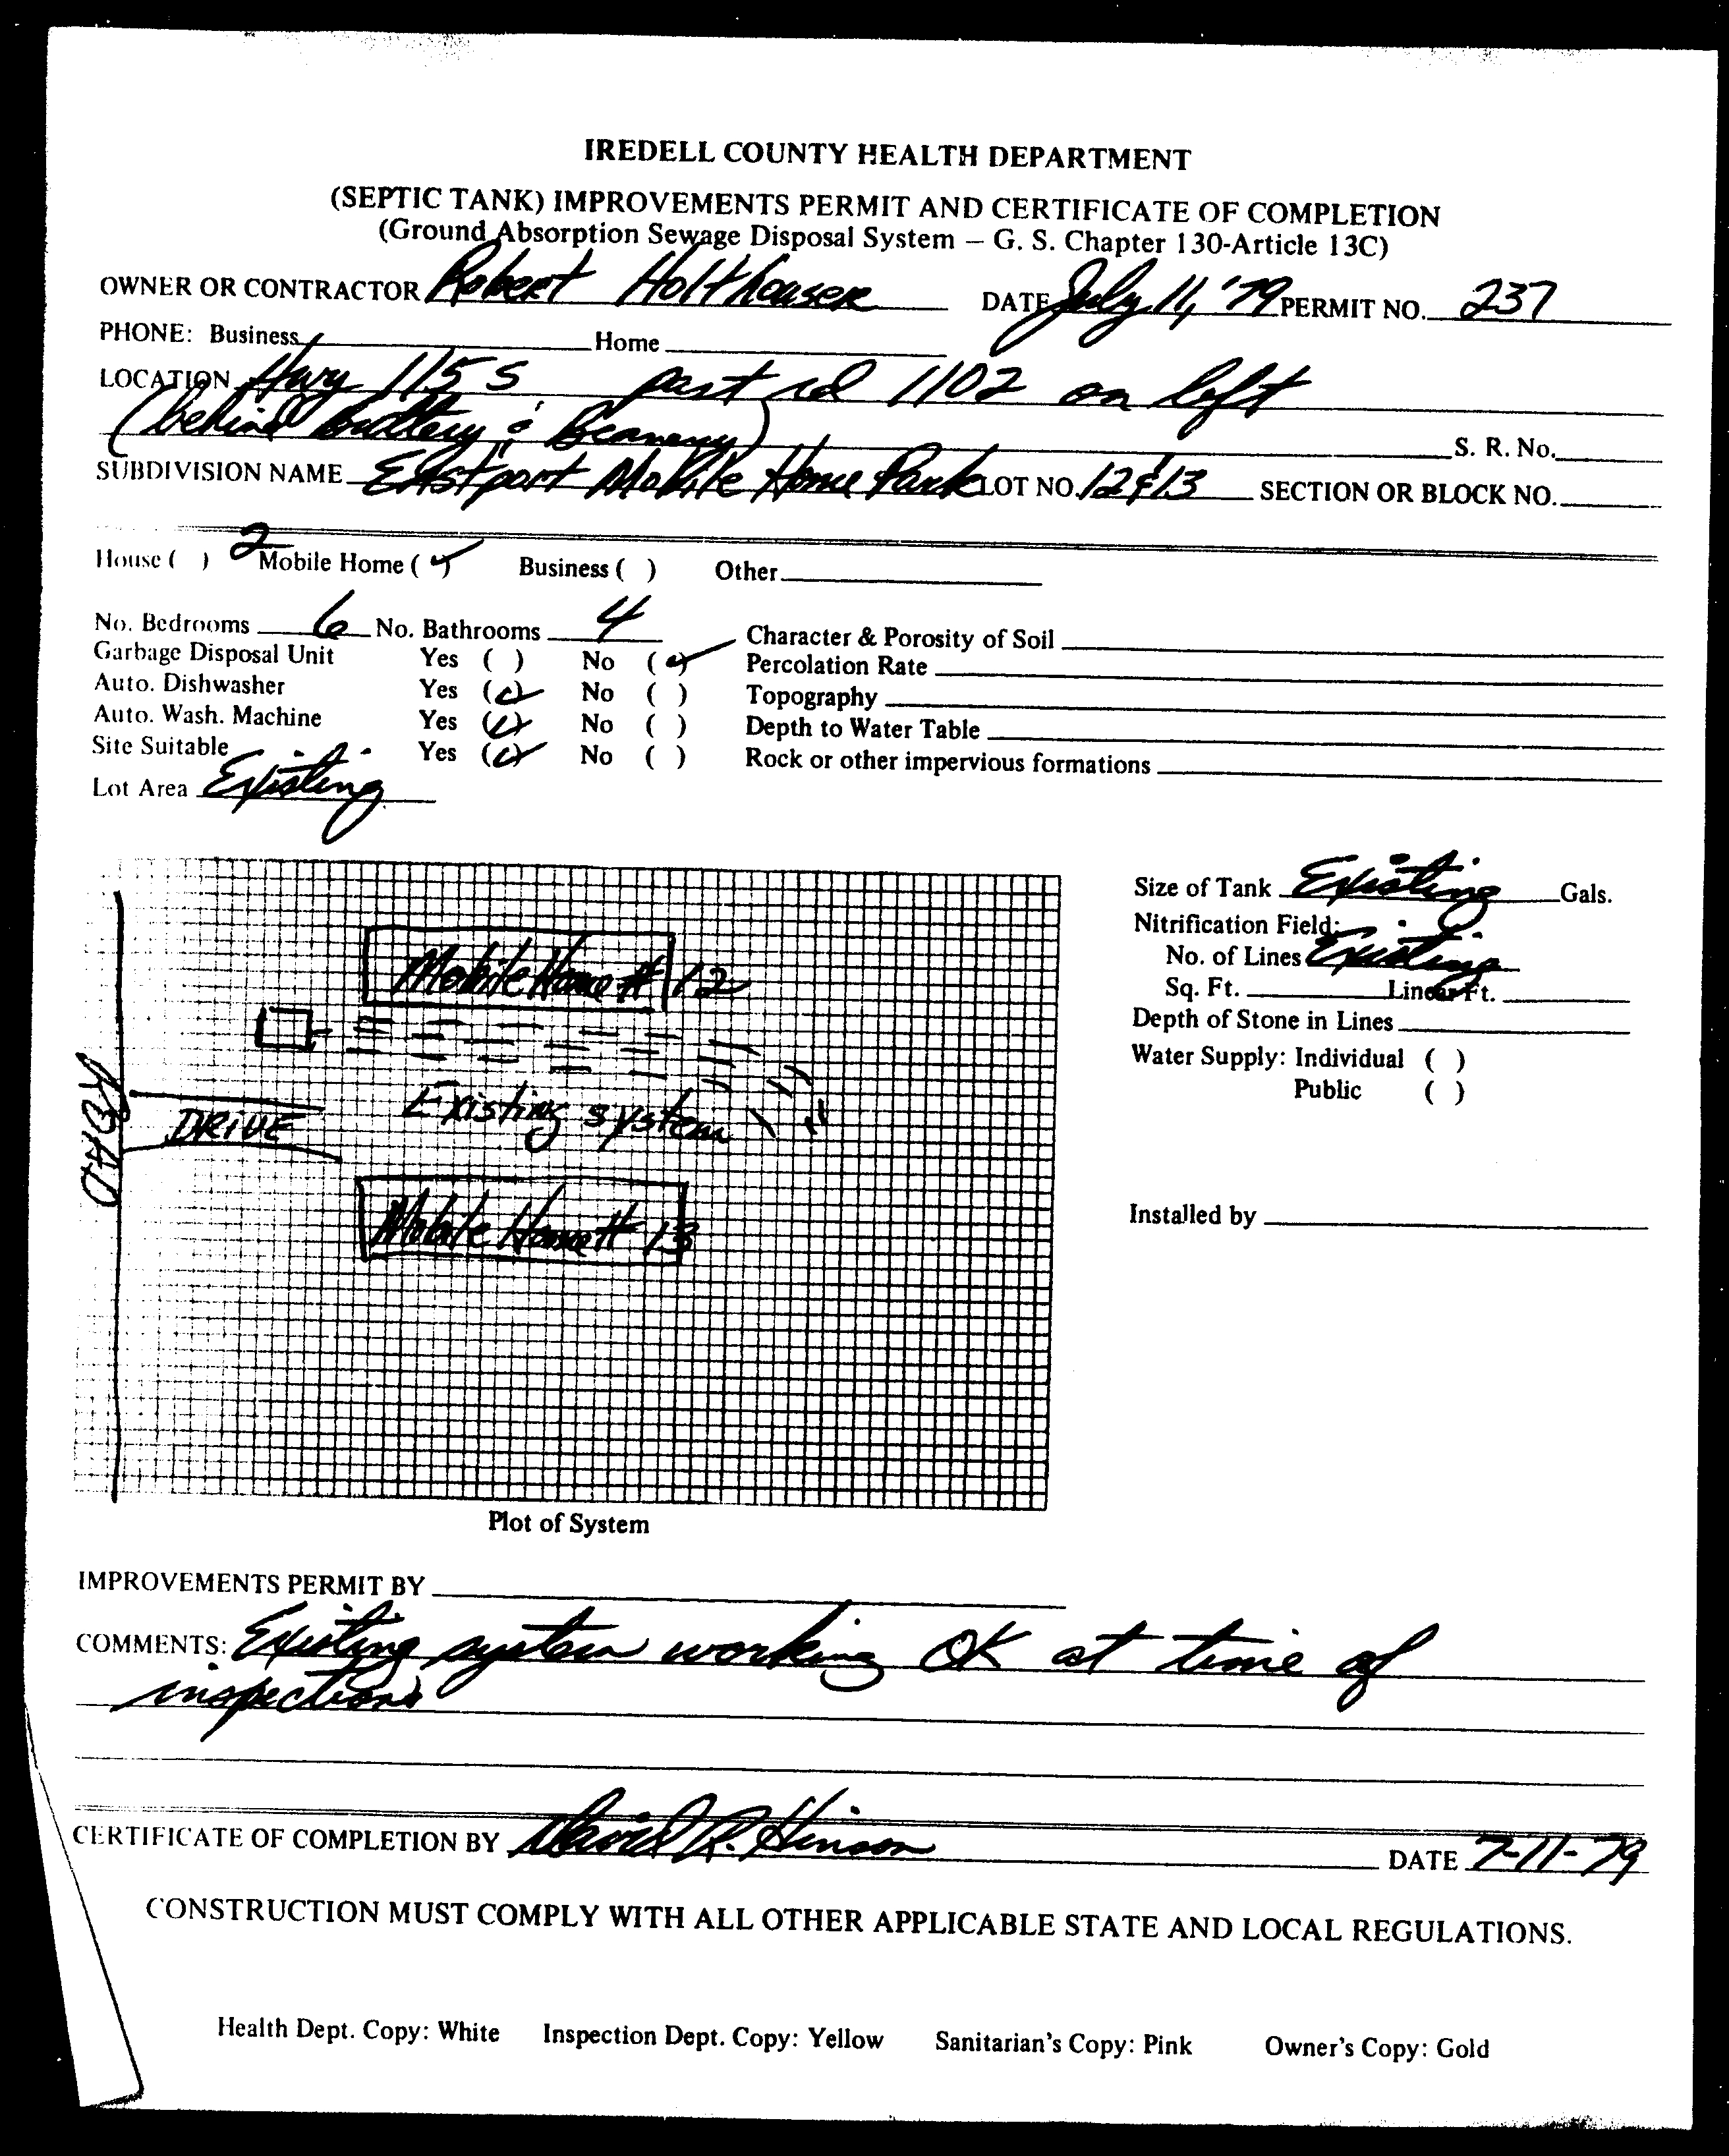 IREDELL COUNTY HEALTH DEPARTMENT
(SEPTIC TANK) IMPROVEMENTS PERMIT AND CERTIFICATE OF COMPLETION
(Ground Absorption Sewage Disposal System — G. S. Chapter 130-Article 13C)
OWNER OR CONTRACTOR Robert Holthouser DATE July 11, '79 PERMIT NO. 237
PHONE: Business Home
LOCATION Hwy 115 S past rd 1102 on left
(behind Buttery & Beanery) S. R. No.
SUBDIVISION NAME Eastport Mobile Home Park LOT NO. 12 & 13 SECTION OR BLOCK NO.
House ( ) 2 Mobile Home (✓) Business ( ) Other
No. Bedrooms 6 No. Bathrooms 4 Character & Porosity of Soil
Garbage Disposal Unit Yes ( ) No (✓) Percolation Rate
Auto. Dishwasher Yes (✓) No ( ) Topography
Auto. Wash. Machine Yes (✓) No ( ) Depth to Water Table
Site Suitable Yes (✓) No ( ) Rock or other impervious formations
Lot Area Existing
Size of Tank Existing Gals.
Nitrification Field:
No. of Lines Existing
Sq. Ft. Linear Ft.
Depth of Stone in Lines
Water Supply: Individual ( )
Public ( )
Installed by
Mobile Home # 12
Existing system
ROAD
DRIVE
Mobile Home # 13
Plot of System
IMPROVEMENTS PERMIT BY
COMMENTS: Existing system working OK at time of
inspection
CERTIFICATE OF COMPLETION BY David R. Hinson DATE 7-11-79
CONSTRUCTION MUST COMPLY WITH ALL OTHER APPLICABLE STATE AND LOCAL REGULATIONS.
Health Dept. Copy: White Inspection Dept. Copy: Yellow Sanitarian's Copy: Pink Owner's Copy: Gold